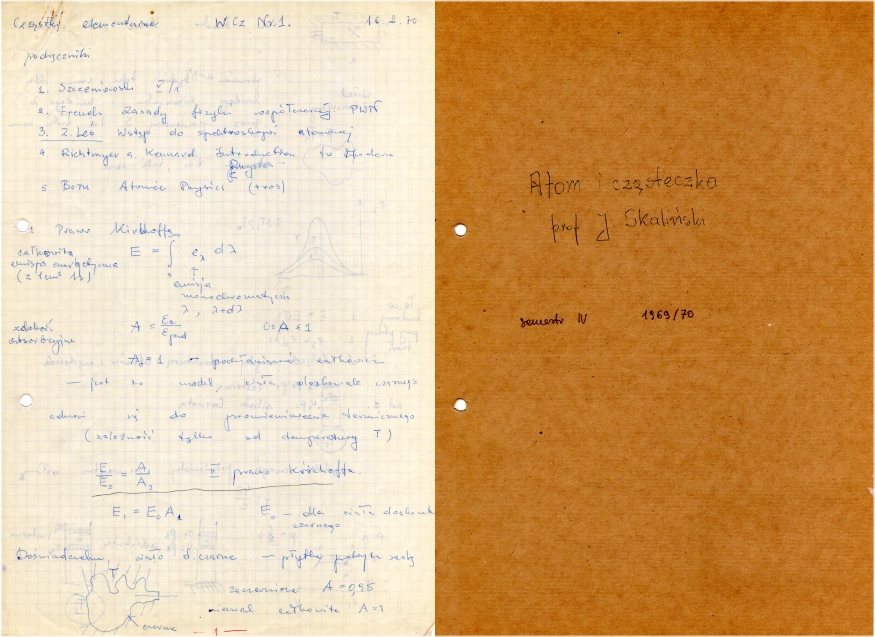 Cząstki elementarne W.Cz Nr.1. 16.2.70
podręczniki
1. Szczeniowski V/1
2. Frenda Zasady fizyki współczesnej PWN
3. Z. Leś Wstęp do spektroskopii atomowej
4 Richtmyer a. Kennard. Introduction to Modern
Physics
5 Born Atomic Physics (+ros)
1 Prawo Kirchhoffa
całkowita
emisja energetyczna
(z 1cm² 1s)
E = ∫ eλ dλ
emisja
monochromatyczna
λ, λ+dλ
zdolność
absorbcyjna
A = 0≤A≤1
A₀=1 – pochłanianie całkowite
– jest to model ciała doskonale czarnego
odnosi się do promieniowania termicznego
(zależność tylko od temperatury T)
E₁/E₂ = A₁/A₂ II prawo Kirchoffa.
E₁ = E₀A₁ E₀ – dla ciała doskonale
czarnego
Doświadczalne ciało d. czarne – płytka pokryta sadzą
zaczernione A=0,95
kanał całkowite A=1
czernione
– 1 –
Atom i cząsteczka
prof J Skaliński
semestr IV 1969/70